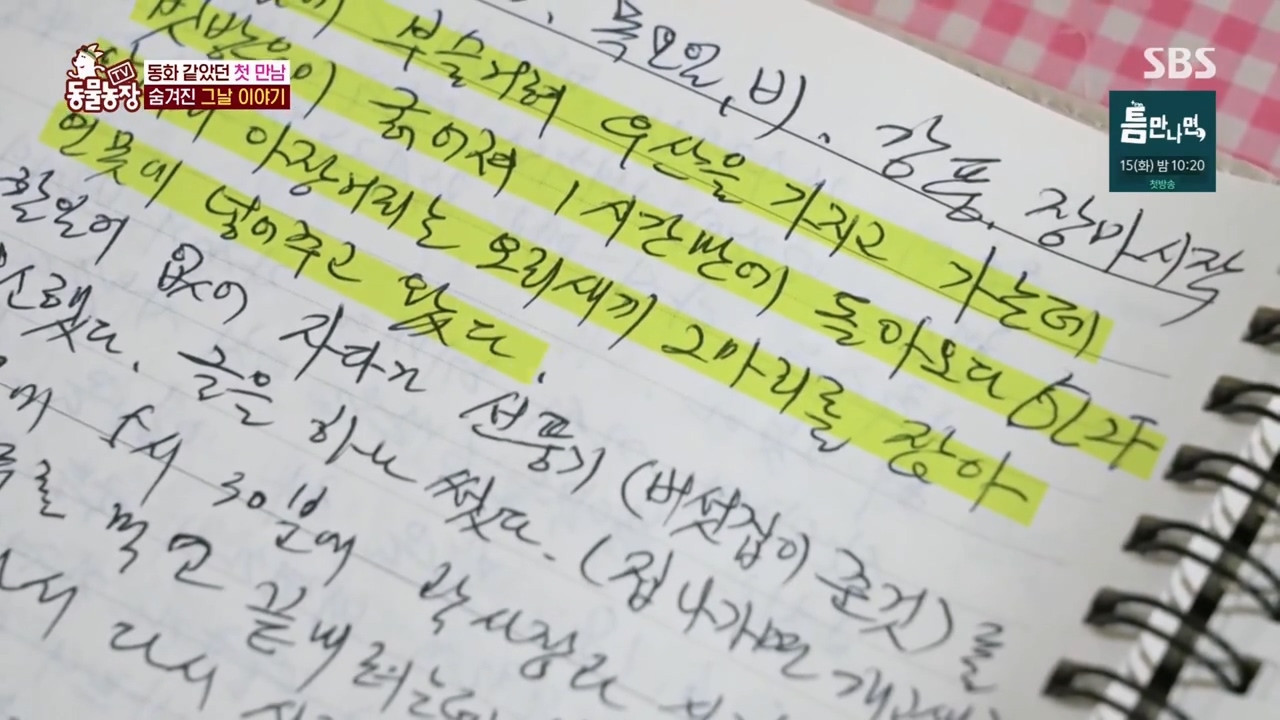 동물농장
TV
동화 같았던 첫 만남
숨겨진 그날 이야기
SBS
틈만나면,
15(화) 밤 10:20
첫방송
목요일, 비. 강풍. 장마시작
부슬거려 우산을 가지고 가는데
빗방울이 굵어져 1시간만에 돌아오다
아장거리는 오리새끼 2마리를 잡아
연못에 넣어주고 왔다.
할일이 없어 자다가 선풍기 (버섯집이 준것)를
했다. 글을 하나 썼다. (집 나가면
5시 30분에 박사장과
먹고 끝내려는데
다시